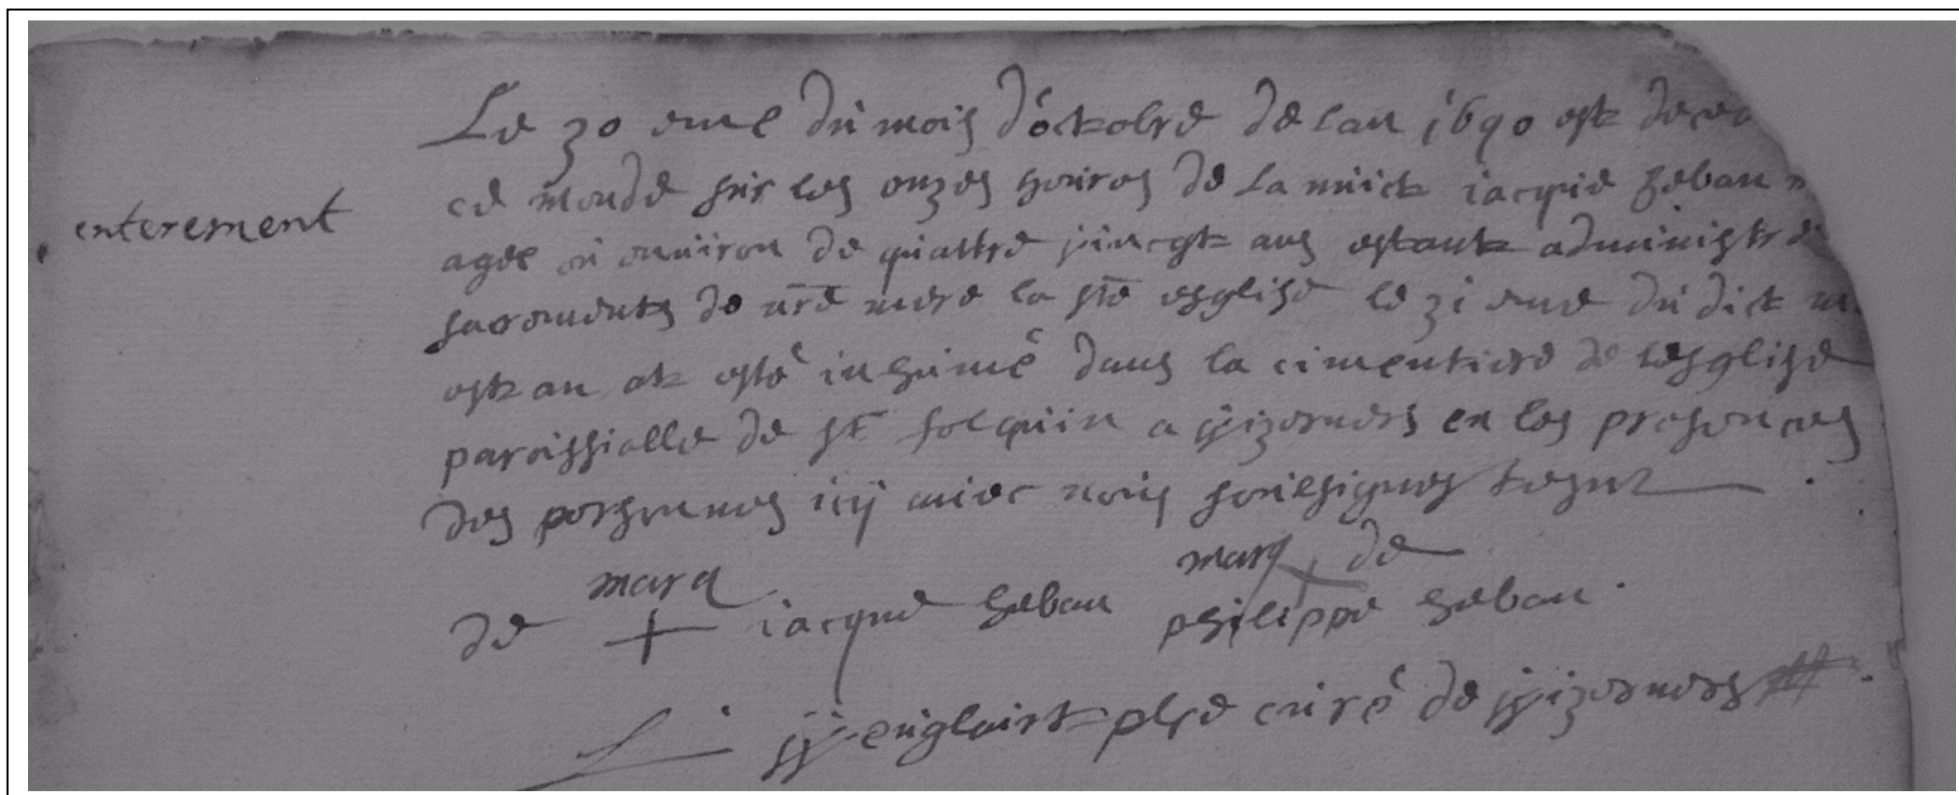 Le 30 eme du mois d'octobre de lan 1690 est decede
enterement
ce monde sur les onzes houres de la nuict iacque heban
agee ou enuiron de quattre vincgt ans estant administre
sacrements de nre mere la ste esglise le 31 eme du dict
est an at esté inhumé dans la cimentiere de lesglise
paroissialle de st folquin a
en les presences
des personnes icy auvec nous soubsignes tesm
marq
marq de
de + iacque heban
philippe heban
pbre curé de